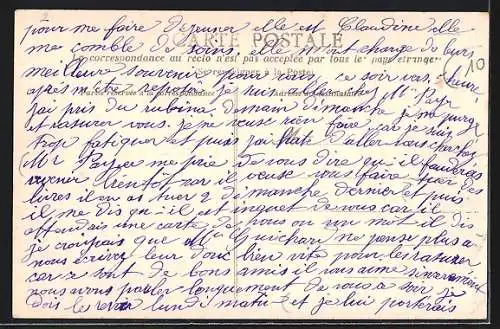 pour me faire dejeuner elle est Claudine elle
me comble de soins, elle m'ont charge de leurs
CARTE POSTALE
La correspondance au recto n'est pas acceptée par tous les pays étrangers
meilleure souvenir pour vous. le soir vas, 
après m'être reposé je suis allé chez Mr
j'ai pris du rubina demain dimanche je me purge
et rasurer vous. je ne veux rien faire car je suis
trop fatiguer et puis j'ai hate d'aller vous
Mr me prie de vous dire qu'il faudrai
revenir bientôt car il veux vous faire tuer des
lievres il en as tuer 2 dimanche dernier et puis
il me dis qu'il est inquiet de vous car il
attendais une carte de vous ou un mot il dis
je croyais que Mr Guichard ne pense plus a
nous écrivez leur donc bien vite pour les rasurer
car s sont de bons amis il vous aime sincerement
nous avons parler longuement de vous a soir je
dois le revoir lundi matin et je lui porterais
10